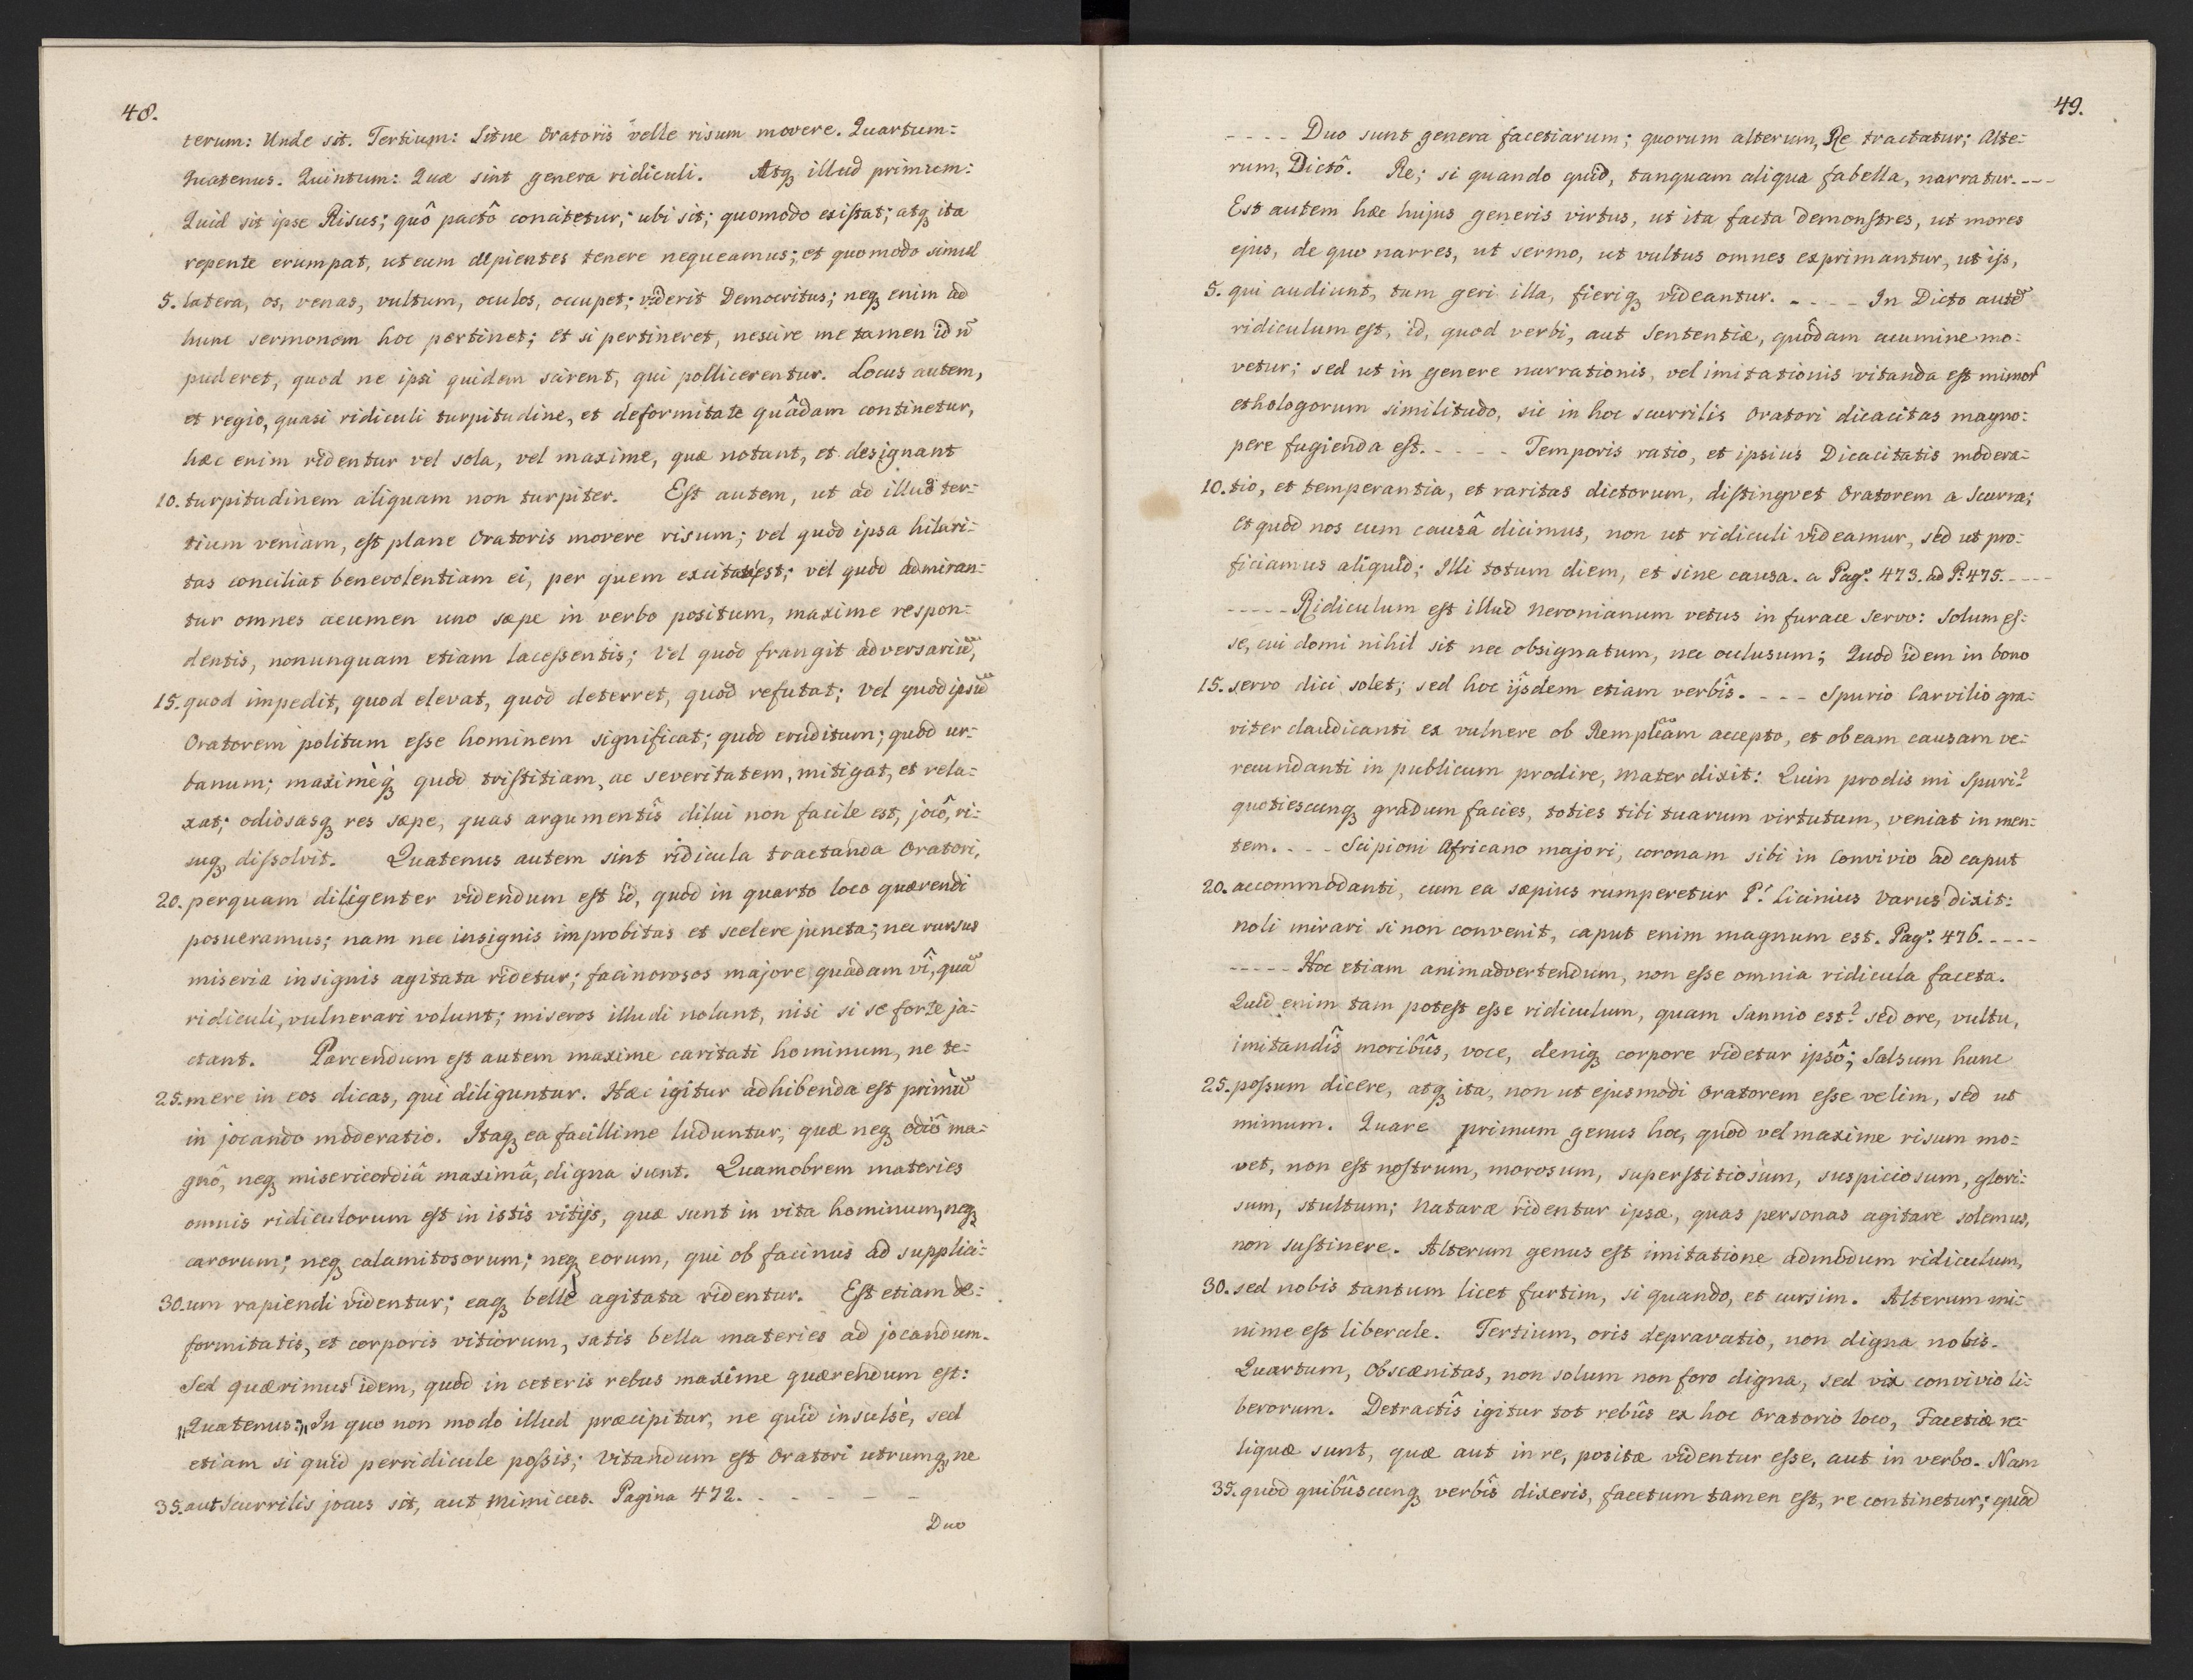 48.
terum: Unde sit. Tertium: Sitne Oratoris velle risum movere. Quartum:
Quatenus. Quintum: Quæ sint genera ridiculi. Atq; illud primum:
Quid sit ipse Risus; quô pactô concitetur; ubi sit; quomodo existat; atq; ita
repente erumpat, ut eum cupientes tenere nequeamus; et quomodo simul
5. latera, os, venas, vultum, oculos, occupet; viderit Democritus; neq; enim ad
hunc sermonem hoc pertinet; et si pertineret, nescire me tamen id n̄
puderet, quod ne ipsi quidem scirent, qui pollicerentur. Locus autem,
et regio, quasi ridiculi turpitudine, et deformitate quâdam continetur,
hæc enim ridentur vel sola, vel maxime, quæ notant, et designant
10. turpitudinem aliquam non turpiter. Est autem, ut ad illud ter=
tium veniam, est plane Oratoris movere risum; vel quod ipsa hilari=
tas conciliat benevolentiam ei, per quem excitata est; vel quod admiran=
tur omnes acumen uno sæpe in verbo positum, maxime respon=
dentis, nonunquam etiam lacessentis; Vel quod frangit adversariū,
15. quod impedit, quod elevat, quod deterret, quod refutat; vel quod ipsū
Oratorem politum esse hominem significat; quod eruditum; quod ur=
banum; maximèq; quod tristitiam, ac severitatem, mitigat, et rela=
xat; odiosasq; res sæpe, quas argumentîs dilui non facile est, jocô, ri=
suq; dissolvit. Quatenus autem sint ridicula tractanda Oratori,
20. perquam diligenter videndum est id, quod in quarto loco quærendi
posueramus; nam nec insignis improbitas et scelere juncta; nec rursus
miseria insignis agitata ridetur; facinorosos majore quadam vî, quā
ridiculi, vulnerari volunt; miseros illudi nolunt, nisi si se forte ja=
ctant. Parcendum est autem maxime caritati hominum, ne te=
25. mere in eos dicas, qui diliguntur. Hæc igitur adhibenda est primū
in jocando moderatio. Itaq; ea facillime luduntur, quæ neq; odiô ma=
gnô, neq; misericordiâ maximâ, digna sunt. Quamobrem materies
omnis ridiculorum est in istis vitijs, quæ sunt in vita hominum, neq;
carorum; neq; calamitosorum; neq; eorum, qui ob facinus ad supplici=
30. um rapiendi videntur; eaq; bellè agitata ridentur. Est etiam de=
formitatis, et corporis vitiorum, satis bella materies ad jocandum.
Sed quærimus idem, quod in ceteris rebus maxime quærendum est:
„Quatenus:„ In quo non modo illud præcipitur, ne quid insulsè, sed
etiam si quid perridicule possis; Vitandum est Oratori utrumq; ne
35. aut Scurrilis jocus sit, aut Mimicus. Pagina 472. - - - - -
Duo
49.
- - - - Duo sunt genera facetiarum; quorum alterum, Re tractatur; Alte=
rum, Dictô. Re; si quando quid, tanquam aliqua fabella, narratur. - - -
Est autem hæc hujus generis virtus, ut ita facta demonstres, ut mores
ejus, de quo narres, ut sermo, ut vultus omnes exprimantur, ut ijs,
5. qui audiunt, tum geri illa, fieriq; videantur. - - - - In Dicto autē
ridiculum est, id, quod verbi, aut Sententiæ, quôdam acumine mo=
vetur; sed ut in genere narrationis, vel imitationis vitanda est mimor̄
ethologorum similitudo, sic in hoc scurrilis Oratori dicacitas magno=
pere fugienda est. - - - - Temporis ratio, et ipsius Dicacitatis modera=
10. tio, et temperantia, et raritas dictorum, distingvet Oratorem a Scurra;
et quod nos cum causâ dicimus, non ut ridiculi videamur, sed ut pro=
ficiamus aliquid; Illi totum diem, et sine causa. a Pagᵃ. 473. ad P. 475. - - - -
- - - - - Ridiculum est illud Neronianum vetus in furace Servo: Solum es=
se, cui domi nihil sit nec obsignatum, nec oclusum; Quod idem in bono
15. servo dici solet; sed hoc ijsdem etiam verbîs. - - - Spurio Carvilio gra=
viter claudicanti ex vulnere ob Remplicam accepto, et ob eam causam ve=
recundanti in publicum prodire, Mater dixit: Quin prodis mi Spuri?
quotiescunq; gradum facies, toties tibi tuarum virtutum, veniat in men=
tem. - - - Scipioni Africano majori, coronam sibi in Convivio ad caput
20. accommodanti, cum ea sæpius rumperetur P. Licinius Varus dixit:
noli mirari si non convenit, caput enim magnum est. Pagᵃ. 476. - - - - -
- - - - - Hoc etiam animadvertendum, non esse omnia ridicula faceta.
Quid enim tam potest esse ridiculum, quam Sannio est? sed ore, vultu,
imitandîs moribûs, voce, deniq; corpore ridetur ipsô; Salsum hunc
25. possum dicere, atq; ita, non ut ejusmodi Oratorem esse velim, sed ut
mimum. Quare primum genus hoc, quod vel maxime risum mo=
vet, non est nostrum, morosum, superstitiosum, suspiciosum, glori=
sum, stultum; Naturæ ridentur ipsæ, quas personas agitare solemus,
non sustinere. Alterum genus est imitatione admodum ridiculum,
30. sed nobis tantum licet furtim, si quando, et cursim. Alterum mi=
nime est liberale. Tertium, oris depravatio, non digna nobis.
Quartum, Obscænitas, non solum non foro digna, sed vix convivio li=
berorum. Detractîs igitur tot rebûs ex hoc Oratorio loco, Facetiæ re=
liquæ sunt, quæ aut in re, positæ videntur esse, aut in verbo. Nam
35. quod quibûscunq; verbîs dixeris, facetum tamen est, re continetur; quod